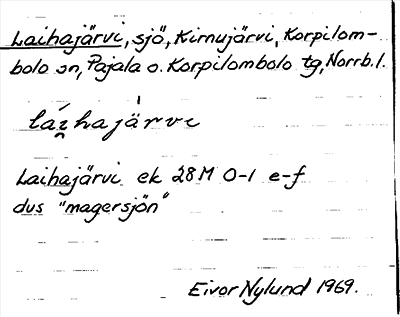 Laihajärvi, sjö, Kirnujärvi, Korpilom-
bolo sn, Pajala o. Korpilombolo tg, Norrb. l.
lái̯hajärvi
Laihajärvi ek 28M 0-1 e-f
dvs "magersjön"
Eivor Nylund 1969.